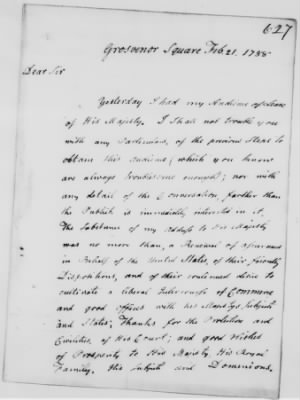 627
Grosvenor Square Feb. 21. 1788
Dear Sir
Yesterday I had my Audience of Leave
of His Majesty. I shall not trouble you
with any Particulars, of the previous Steps to
obtain this Audience (which you know
are always troublesome enough); nor with
any detail of the Conversation, farther than
the Publick is immediately interested in it.
The Substance of my Address to His Majesty
was no more than, a Renewal of assurances
in Behalf of the United States, of their friendly
Dispositions, and of their continued desire to
cultivate a liberal Intercourse of Commerce
and good offices with his Majestys, Subjects
and States; Thanks for the Protection and
Civilities, of His Court; and good Wishes
of Prosperity to His Majesty, His Royal
Family, His Subjects and Dominions.